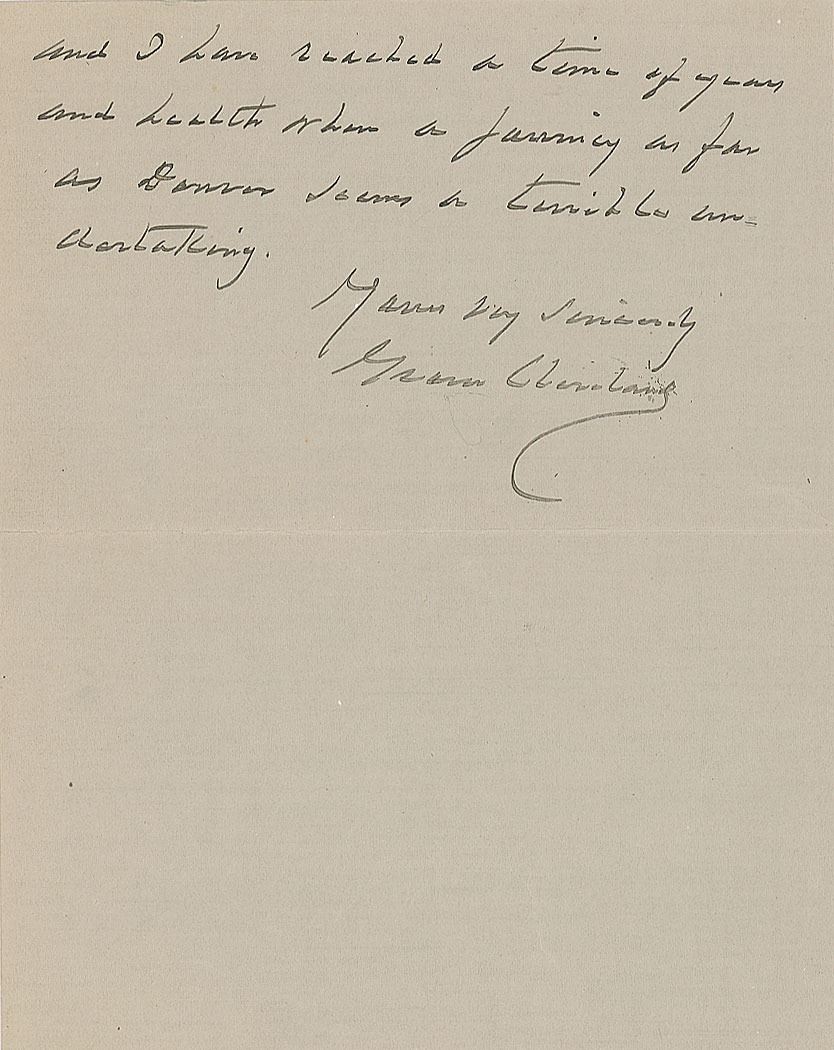 and I have reached a time of years
and health when a journey as far
as Denver seems a terrible un=
dertaking.
Yours very sincerely
Grover Cleveland